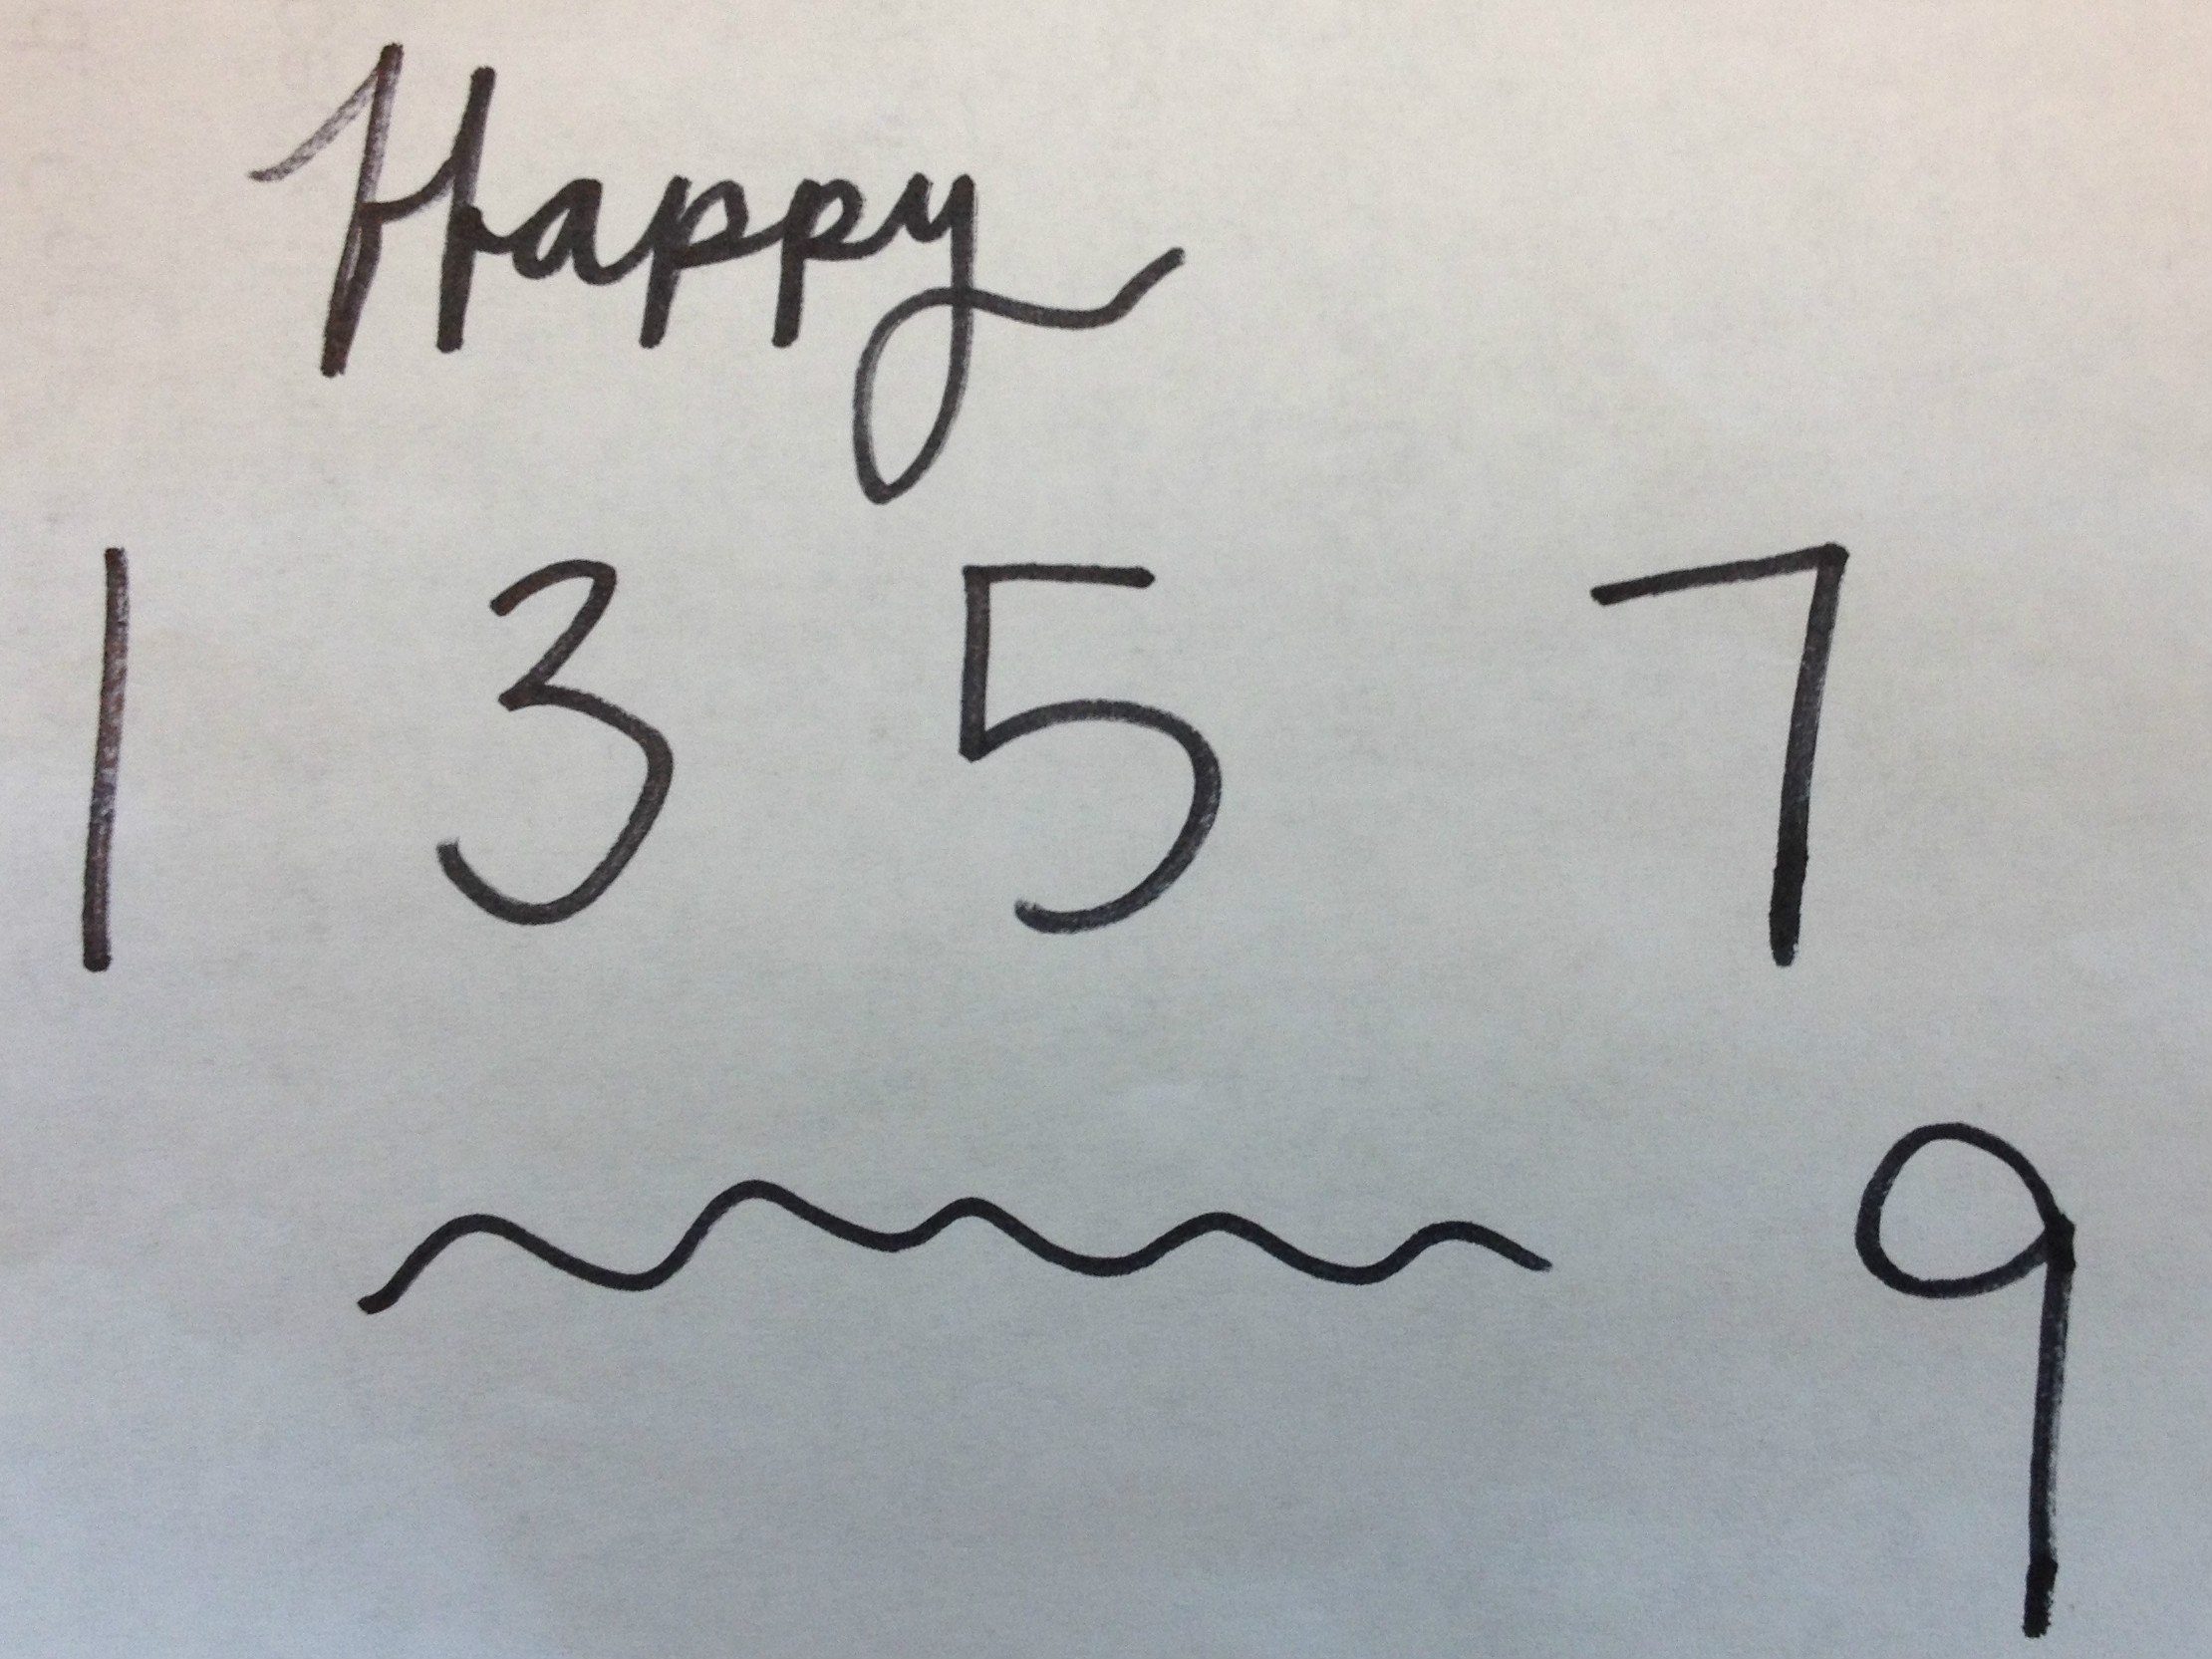 Happy
1 3 5 7
9